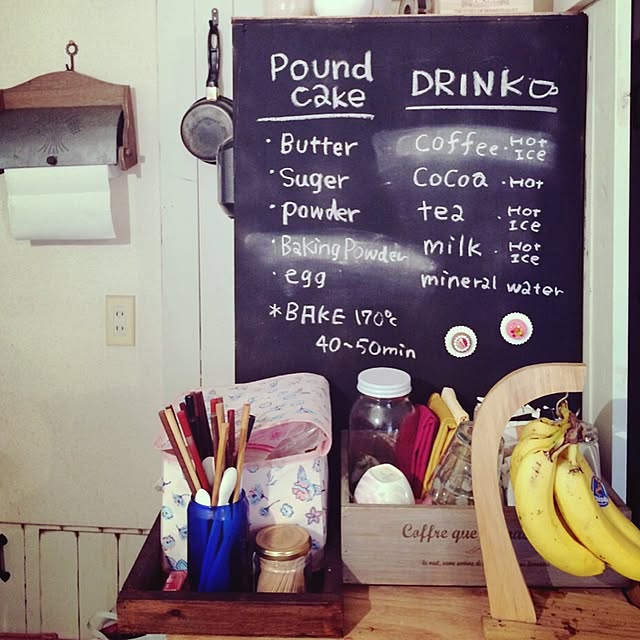 Pound
cake
・Butter
・Suger
・powder
・Baking Powder
・egg
*BAKE 170℃
40~50min
DRINK
Coffee・HOT
ICE
Cocoa・HOT
tea・HOT
ICE
milk・HOT
ICE
mineral water
Coffre que